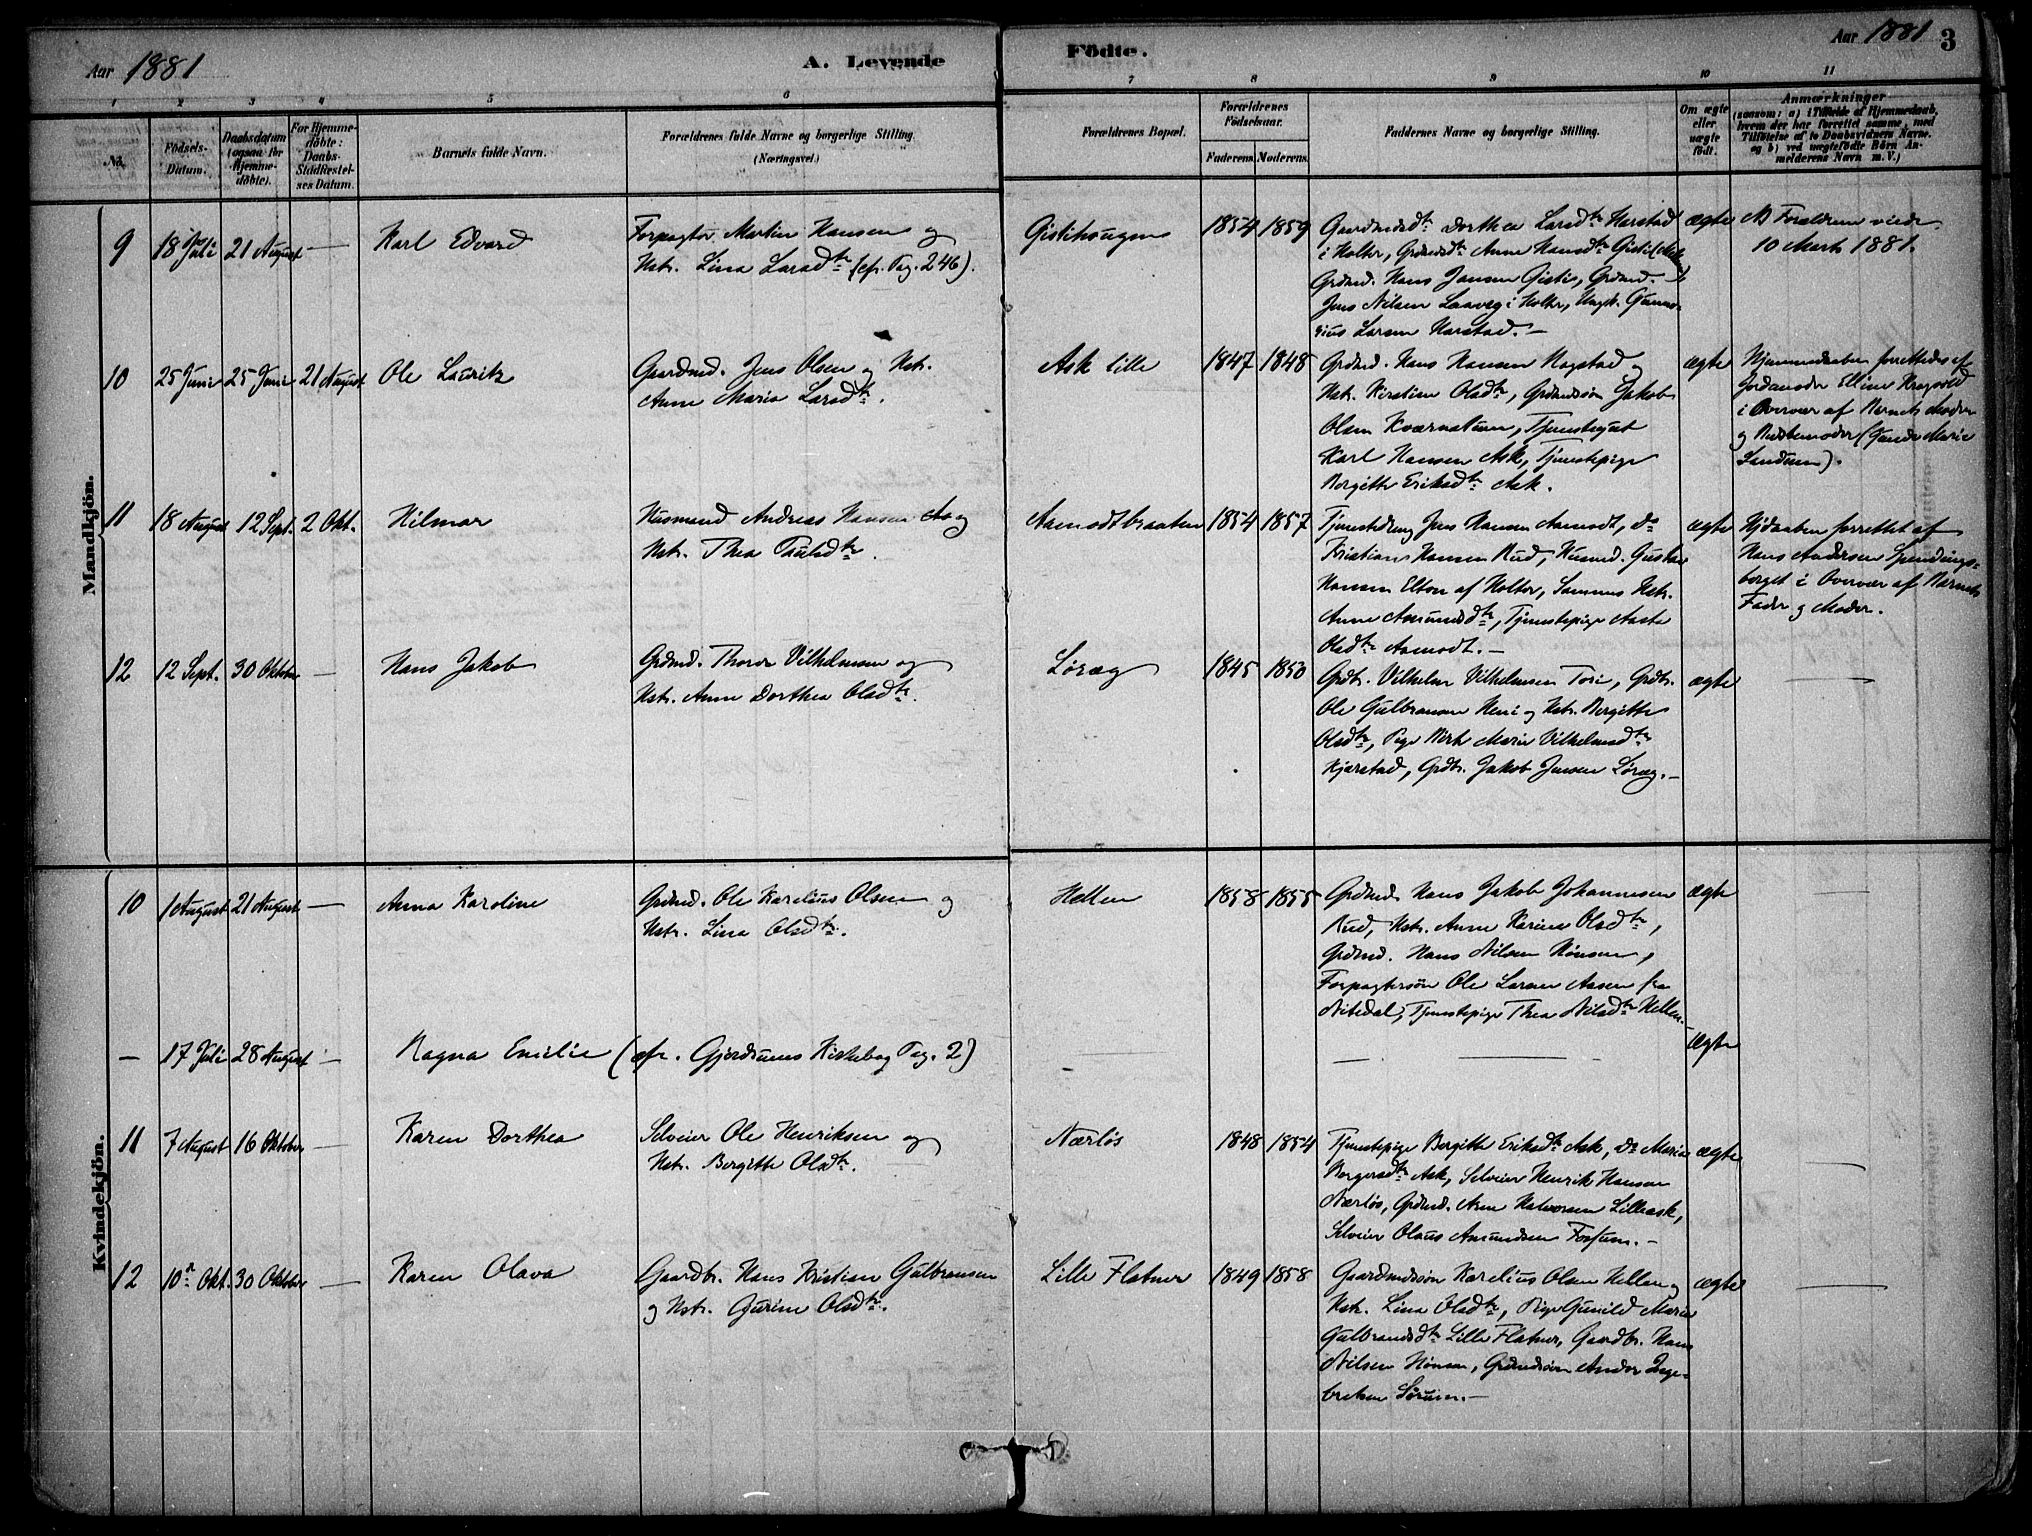 Aar 1881
A. Levende
Födte.
Aar 1881
3
1 2 3 4 5 6 7 8 9 10 11
No.
Födsels-
Datum.
Daabsdatum
(ogsaa for
Hjemme-
döbte).
For Hjemme-
döbte:
Daabs-
Stadfæstel-
ses Datum.
Barnets fulde Navn.
Forældrenes fulde Navne og borgerlige Stilling.
(Næringsvei.)
Forældrenes Bopæl.
Forældrenes
Födselsaar.
Faderens. Moderens.
Faddernes Navne og borgerlige Stilling.
Om ægte
eller
uægte
født.
Anmærkninger
(saasom: a) i Tilfælde af Hjemmedaab,
hvem der har forrettet samme, med
Tilføielse af to Daabsvidners Navne.
og b) ved uægtefødte Börn An-
melderens Navn m. V.)
Mandkjön.
9
18 Juli
21 August
—
Karl Edvard
Forpagter Martin Hansen og
Hstr. Lina Larsdtr (cfr. Pag. 246).
Gistihaugen
1854
1859
Gaardmdsdtr Dorthea Larsdtr Harstad
i Holter, Grdmdsdtr Anne Hansdtr Gisti
Grdmd. Hans Jansen Gisti, Grdmd.
Jens Nilsen Laaveg i Holter, Ungk. Gunne-
rius Larsen Harstad. —
ægte
NB Forældrene viede
10 Marts 1881.
10
25 Juni
25 Juni
21 August
Ole Lauritz
Gaardmd. Jens Olsen og Hstr.
Anne Maria Larsdtr.
Ask lille
1847
1848
Grdmd. Hans Hansen Hagstad og
Hstr. Kirstine Olsdtr, Grdmdssön Jakob
Olsen Kværnatuen, Tjenestegut
Karl Hansen Ask, Tjenestepige
Bergitte Eriksdtr Ask.
ægte
Hjemmedaaben forrettedes af
Jordmoder Elline Kragvold
i Overvær af Barnets Moder
og Bedstemoder (Gunde Marie
Sandum).
11
18 August
12 Sept.
2 Okt.
Hilmar
Husmand Andreas Hansen og
Hstr. Thea Paulsdtr.
Aamodtbraaten
1854
1857
Tjenestedreng Jens Hansen Aamodt, Do
Kristian Hansen Rud, Husmd. Gustav
Hansen Elton af Holter, Sammes Hstr.
Anne Amundsdtr, Tjenestepige Aaste
Olsdtr Aamodt. —
ægte
Hjdaaben forrettet af
Hans Andersen Spendings-
berget i Overvær af Barnets
Fader og Moder.
12
12 Sept.
30 Oktober
—
Hans Jakob
Grdmd. Thorer Vilhelmsen og
Hstr. Anne Dorthea Olsdtr.
Löræg
1845
1850
Grdbr. Vilhelm Vilhelmsen Tori, Grdbr.
Ole Gulbransen Heni og Hstr. Bergitte
Olsdtr, Pige Berte Marie Vilhelmsdtr
Kjærstad, Grdbr. Jakob Jensen Löræg. —
ægte
—
Kvindekjön.
10
1 August
21 August
—
Anna Karoline
Grdmd. Ole Karelius Olsen og
Hstr. Lina Olsdtr.
Hellen
1858
1855
Grdmd. Hans Jakob Johannesen
Rud, Hstr. Anne Karine Olsdtr,
Grdmd. Hans Nilsen Hönsen,
Forpagtersön Ole Larsen Aasen fra
Nitedal, Tjenestepige Thea Nilsdtr Hellen. —
ægte
—
—
17 Juli
28 August
—
Ragna Emilie (cfr. Gjerdrums Kirkebog Pag. 2)
— —
ægte
—
11
7 August
16 Oktober
—
Karen Dorthea
Selveier Ole Henriksen og
Hstr. Bergitte Olsdtr.
Nærlös
1848
1854
Tjenestepige Bergitte Eriksdtr Ask, Do Maria
Borgersdtr Ask, Selveier Henrik Hansen
Nærlös, Grdmd. Arne Halvorsen Lilleask,
Selveier Olaus Amundsen Fossum. —
ægte
—
12
10 Okt.
30 Oktober
—
Karen Olava
Gaardbr. Hans Kristian Gulbransen
og Hstr. Gurine Olsdtr.
Lille Flatner
1849
1858
Gaardmdssön Karelius Olsen Hellen og
Hstr. Lina Olsdtr, Pige Gunild Marie
Gulbrandsdtr Lille Flatner, Gaardbr. Hans
Nilsen Hönsen, Grdmdssön Andor Inge-
bretsen Sörum. —
ægte
—